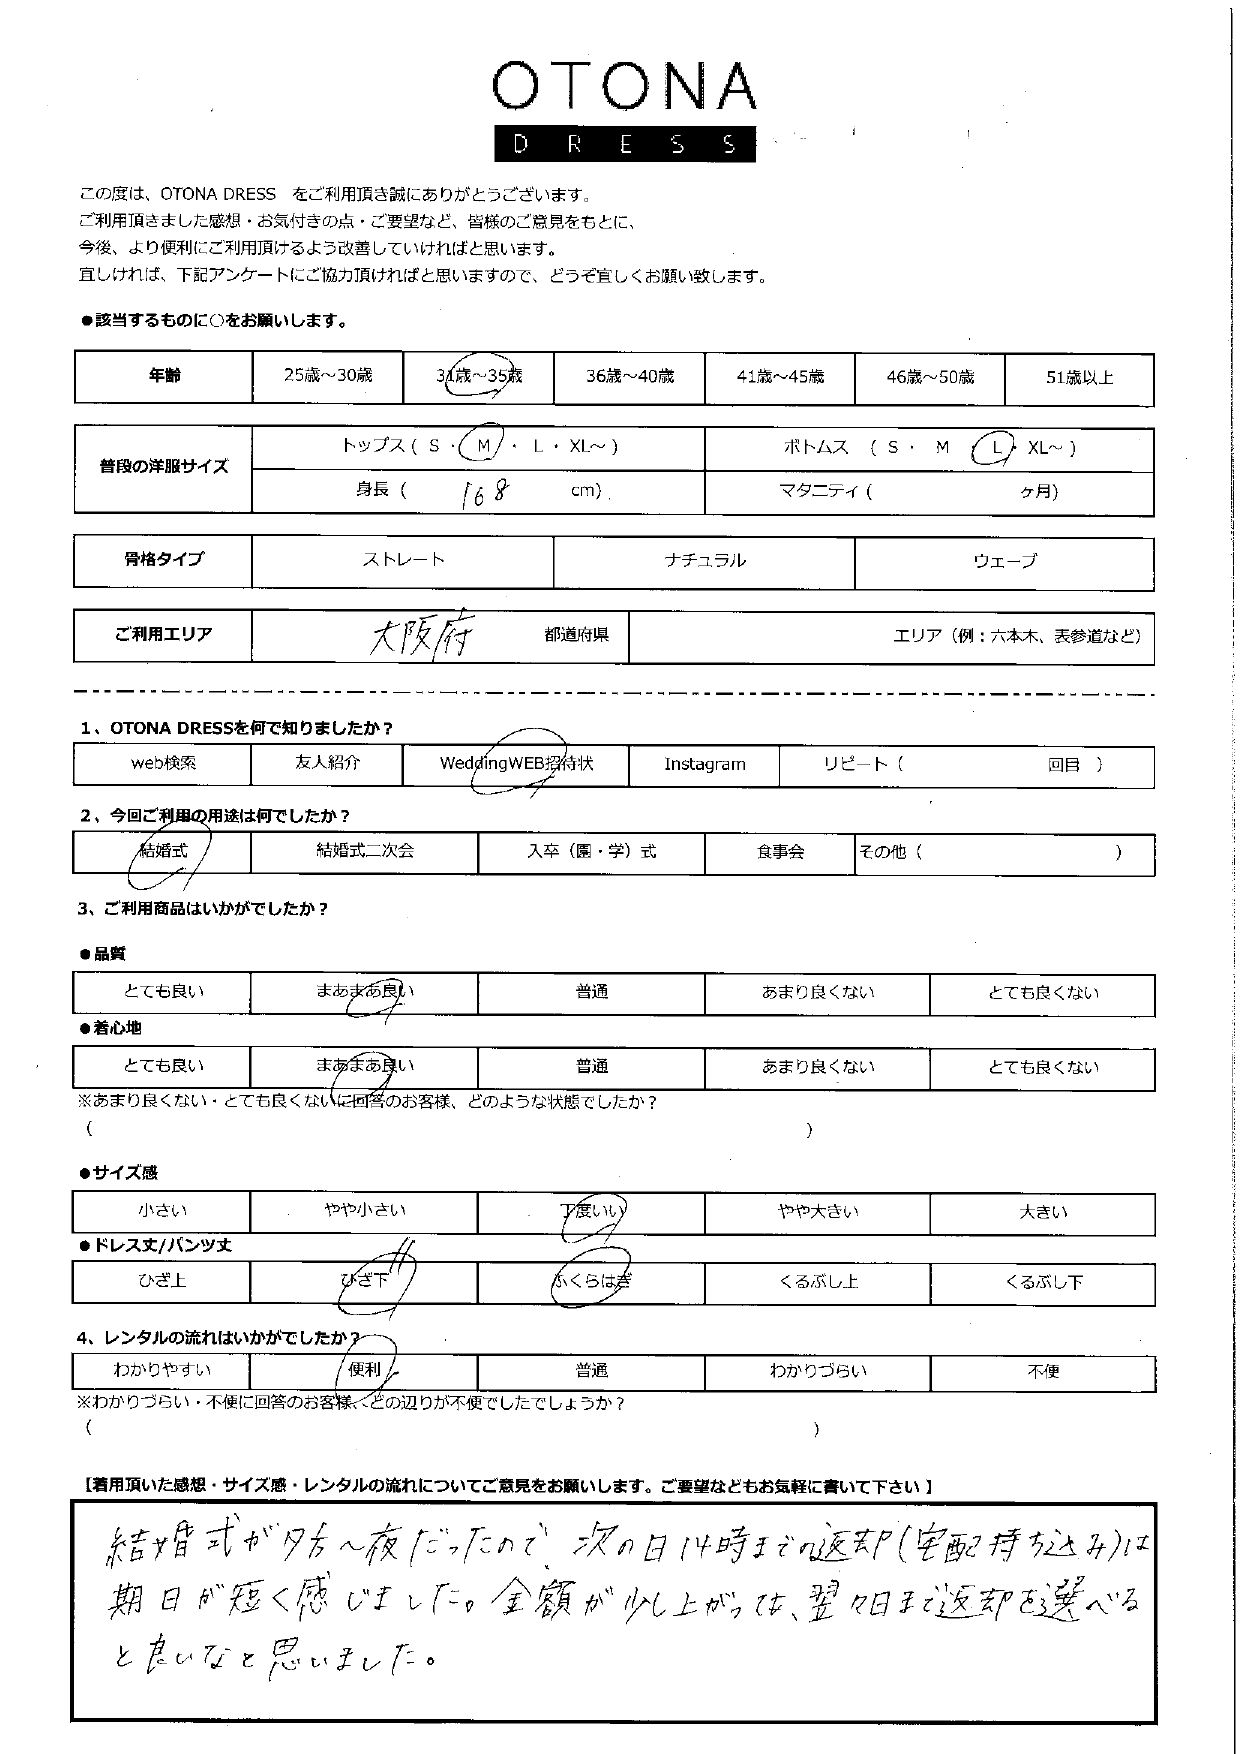 OTONA
DRESS
この度は、OTONA DRESS　をご利用頂き誠にありがとうございます。
ご利用頂きました感想・お気付きの点・ご要望など、皆様のご意見をもとに、
今後、より便利にご利用頂けるよう改善していければと思います。
宜しければ、下記アンケートにご協力頂ければと思いますので、どうぞ宜しくお願い致します。
●該当するものに○をお願いします。
年齢 25歳～30歳 31歳～35歳 36歳～40歳 41歳～45歳 46歳～50歳 51歳以上
普段の洋服サイズ トップス ( S ・ M ・ L ・ XL～ ) ボトムス ( S ・ M ・ L ・ XL～ )
身長 ( 168 cm) マタニティ ( ヶ月)
骨格タイプ ストレート ナチュラル ウェーブ
ご利用エリア 大阪府 都道府県 エリア（例：六本木、表参道など）
1、OTONA DRESSを何で知りましたか？
web検索 友人紹介 WeddingWEB招待状 Instagram リピート（ 回目 ）
2、今回ご利用の用途は何でしたか？
結婚式 結婚式二次会 入卒（園・学）式 食事会 その他（ ）
3、ご利用商品はいかがでしたか？
●品質
とても良い まあまあ良い 普通 あまり良くない とても良くない
●着心地
とても良い まあまあ良い 普通 あまり良くない とても良くない
※あまり良くない・とても良くないに回答のお客様、どのような状態でしたか？
( )
●サイズ感
小さい やや小さい 丁度いい やや大きい 大きい
●ドレス丈/パンツ丈
ひざ上 ひざ下 ふくらはぎ くるぶし上 くるぶし下
4、レンタルの流れはいかがでしたか？
わかりやすい 便利 普通 わかりづらい 不便
※わかりづらい・不便に回答のお客様、どの辺りが不便でしたでしょうか？
( )
【着用頂いた感想・サイズ感・レンタルの流れについてご意見をお願いします。ご要望などもお気軽に書いて下さい 】
結婚式が夕方～夜だったので、次の日14時までの返却(宅配持ち込み)は
期日が短く感じました。金額が少し上がっても、翌々日まで返却を選べる
と良いなと思いました。